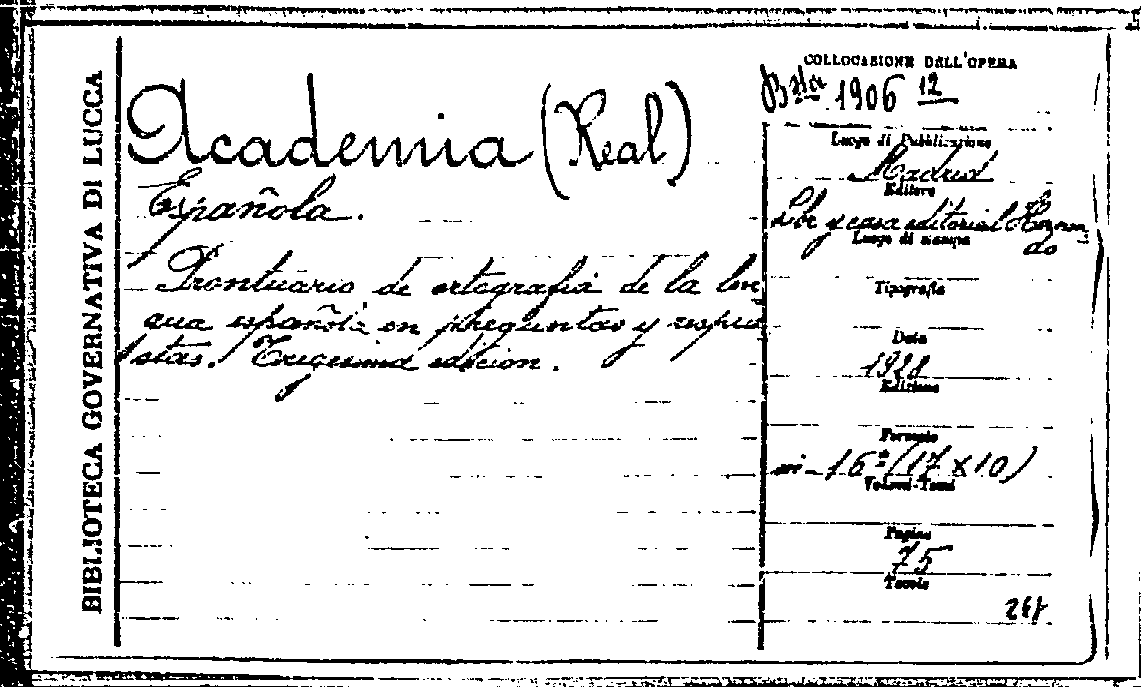 BIBLIOTECA GOVERNATIVA DI LUCCA
Academia (Real)
Española.
Prontuario de ortografia de la len
gua española en preguntas y respue
stas. Trigesima edicion.
COLLOCAZIONE DELL'OPERA
1906 12
Luogo di Pubblicazione
Madrid
Editore
Lbr y casa editorial Hernan
do
Luogo di stampa
Tipografia
Data
1928
Edizione
Formato
in-16º (17 x 10)
Volumi-Tomi
Pagine
75
Tavole